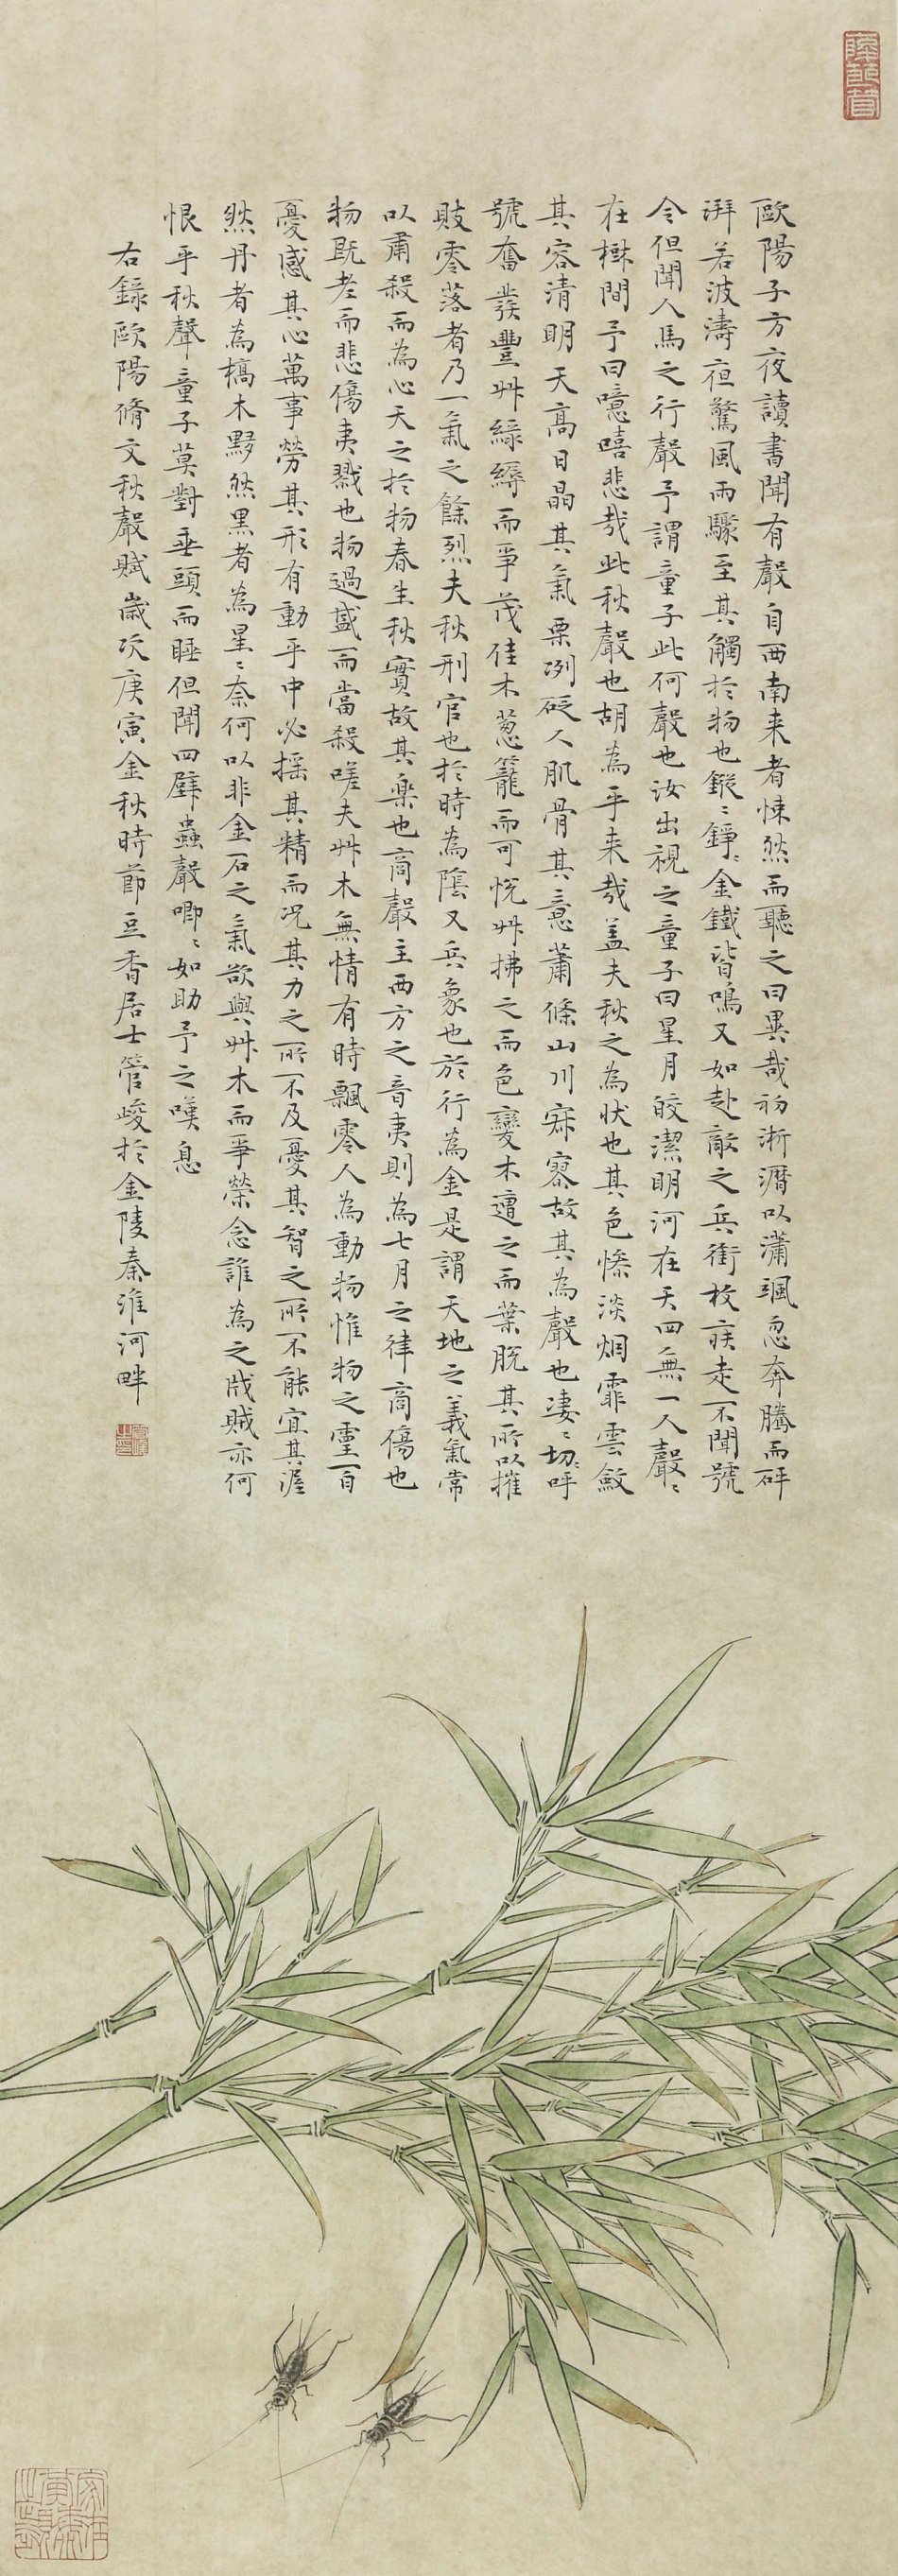 歐陽子方夜讀書聞有聲自西南来者悚然而聽之曰異哉初淅瀝以瀟颯忽奔騰而砰
湃若波濤夜驚風雨驟至其觸於物也鏦〻錚〻金鐵皆鳴又如赴敵之兵銜枚疾走不聞號
令但聞人馬之行聲予謂童子此何聲也汝出視之童子曰星月皎潔明河在天四無一人聲〻
在樹間予曰噫嘻悲哉此秋聲也胡為乎来哉盖夫秋之為状也其色慘淡烟霏雲斂
其容清明天高日晶其氣栗冽砭人肌骨其意蕭條山川寂寥故其為聲也淒〻切〻呼
號奮發豐艸綠縟而爭茂佳木蔥籠而可悅艸拂之而色變木遭之而葉脫其所以摧
敗零落者乃一氣之餘烈夫秋刑官也於時為陰又兵象也於行為金是謂天地之義氣常
以肅殺而為心天之於物春生秋實故其樂也商聲主西方之音夷則為七月之律商傷也
物既老而悲傷夷戮也物過盛而當殺嗟夫艸木無情有時飄零人為動物惟物之靈百
憂感其心萬事勞其形有動乎中必搖其精而况其力之所不及憂其智之所不能宜其渥
然丹者為槁木黟然黑者為星〻奈何以非金石之氣欲與艸木而爭榮念誰為之戕賊亦何
恨乎秋聲童子莫對垂頭而睡但聞四壁蟲聲唧〻如助予之嘆息
右錄歐陽脩文秋聲賦歲次庚寅金秋時節豆香居士管峻於金陵秦淮河畔